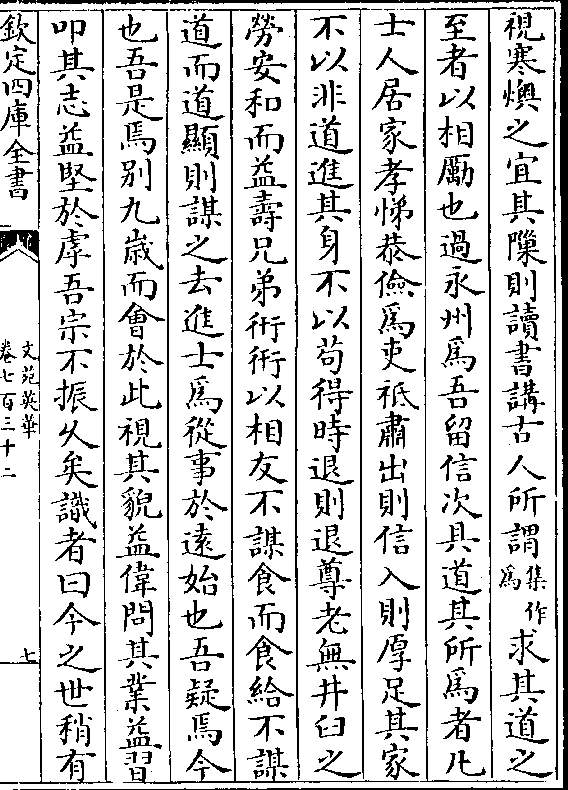 視寒燠之宜其隟則讀書講古人所謂集作爲求其道之
至者以相勵也過永州爲吾留信次具道其所爲者凡
士人居家孝悌恭儉爲吏祗肅出則信入則厚足其家
不以非道進其身不以苟得時退則退尊老無井臼之
勞安和而益壽兄弟衎衎以相友不謀食而食給不謀
道而道顯則謀之去進士爲從事於遠始也吾疑焉今
也吾是焉别九歳而會於此視其貌益偉問其業益習
叩其志益堅於虖吾宗不振久矣識者曰今之世稍有
欽定四庫全書
文苑英華
卷七百三十二
七